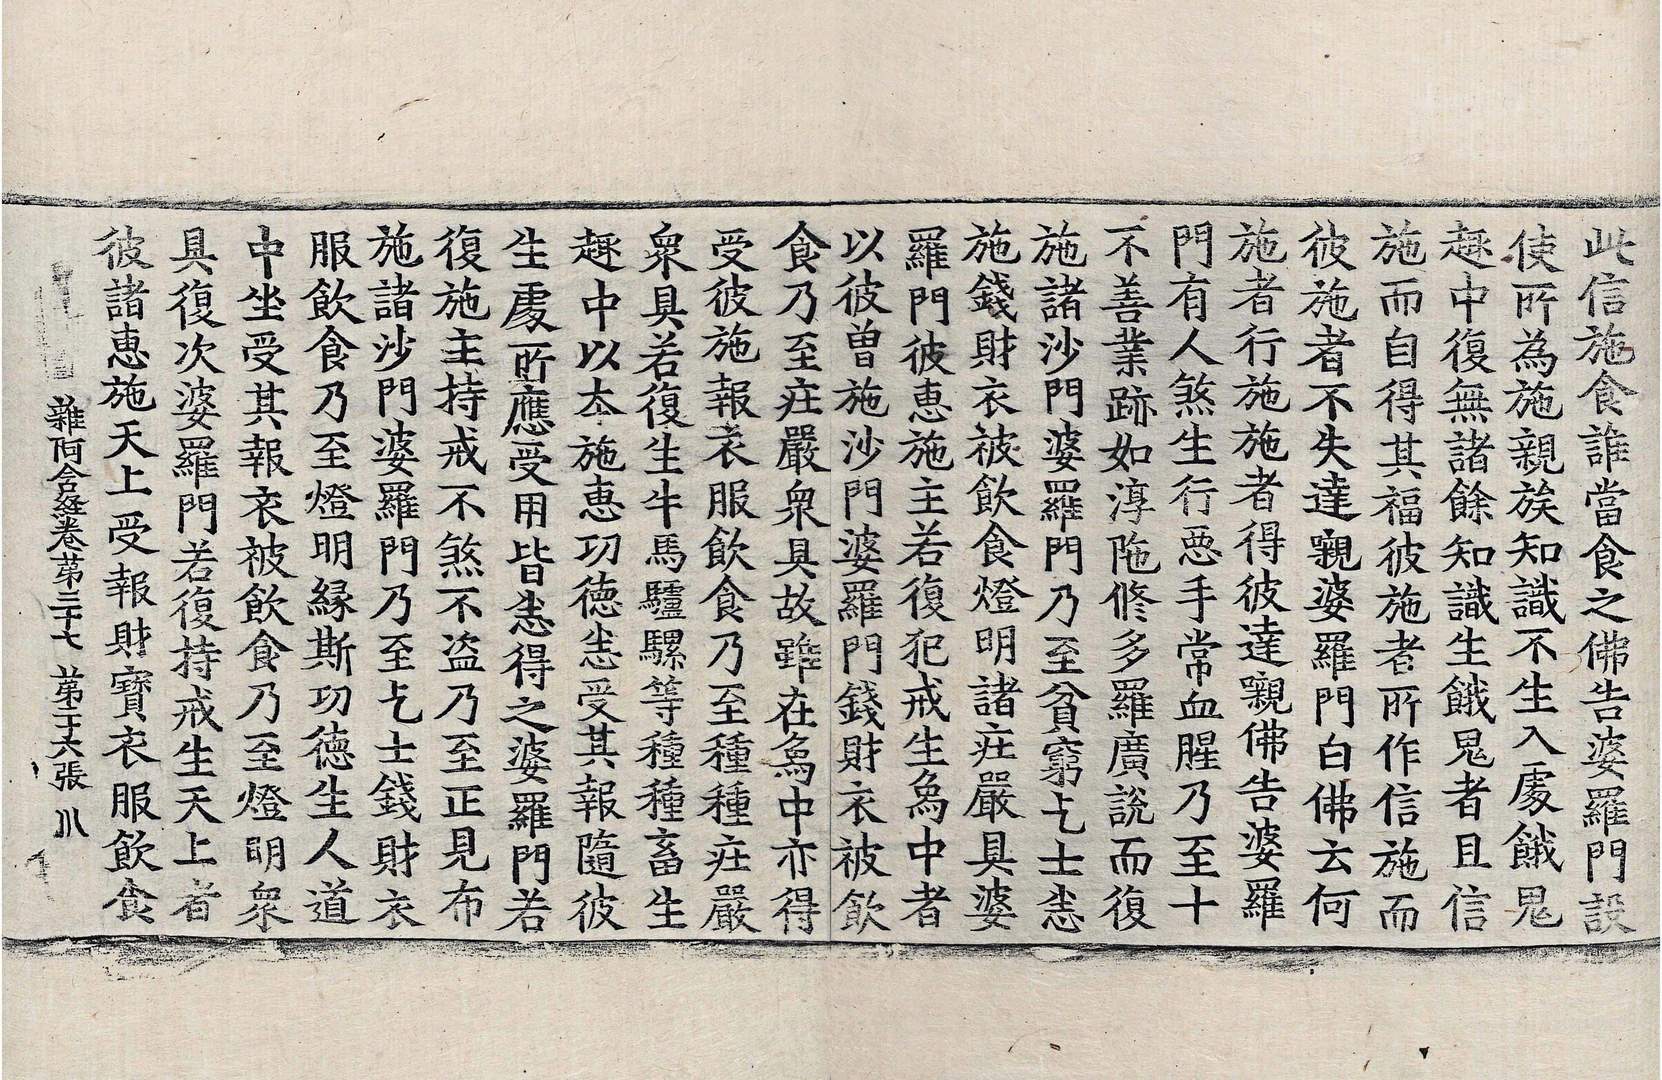 此信施食誰當食之佛告婆羅門設
使所為施親族知識不生入處餓鬼
趣中復無諸餘知識生餓鬼者且信
施而自得其福彼施者所作信施而
彼施者不失達嚫婆羅門白佛云何
施者行施施者得彼達嚫佛告婆羅
門有人煞生行惡手常血腥乃至十
不善業跡如淳陁修多羅廣說而復
施諸沙門婆羅門乃至貧窮乞士悉
施錢財衣被飲食燈明諸庄嚴具婆
羅門彼惠施主若復犯戒生象中者
以彼曾施沙門婆羅門錢財衣被飲
食乃至庄嚴衆具故雖在象中亦得
受彼施報衣服飲食乃至種種庄嚴
衆具若復生牛馬驢騾等種種畜生
趣中以本施惠功德悉受其報隨彼
生處所應受用皆悉得之婆羅門若
復施主持戒不煞不盜乃至正見布
施諸沙門婆羅門乃至乞士錢財衣
服飲食乃至燈明緣斯功德生人道
中坐受其報衣被飲食乃至燈明衆
具復次婆羅門若復持戒生天上者
彼諸惠施天上受報財寶衣服飲食
雜阿含経卷苐三十七 苐二十六張 㳄